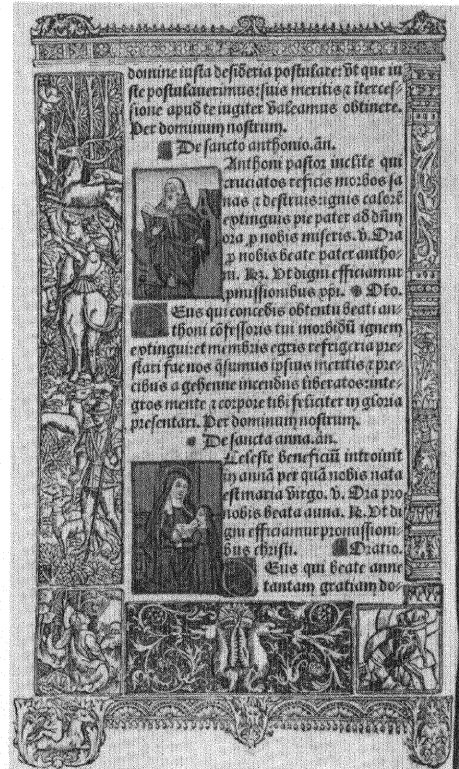 domine iusta desideria postulare: vt que iu
ste postulauerimus: suis meritis ⁊ iterces-
sione apud te iugiter valeamus obtinere.
Per dominum nostrum.
De sancto anthonio. añ.
Anthoni pastor inclite qui
cruciatos reficis morbos sa
nas ⁊ destruis: ignis calorē
extinguis pie pater ad dñm
ora p nobis miseris. v. Ora
p nobis beate pater antho-
ni. ꝶ. Vt digni efficiamur
pmissionibus xpi. Oro.
Eus qui concedis obtentu beati an-
thoni cōfessoris tui morbidū ignem
extingui: et membris egris refrigeria pre-
stari fac nos q̄sumus ipsius meritis ⁊ pre-
cibus a gehenne incendiis liberatos: inte-
gros mente ⁊ corpore tibi feliciter in gloria
presentari. Per dominum nostrum.
De sancta anna. añ.
Celeste beneficiū introiuit
in annā per quā nobis nata
est maria virgo. v. Ora pro
nobis beata anna. ꝶ. Vt di
gni efficiamur promissioni-
bus christi. Oratio.
Eus qui beate anne
tantam gratiam do-